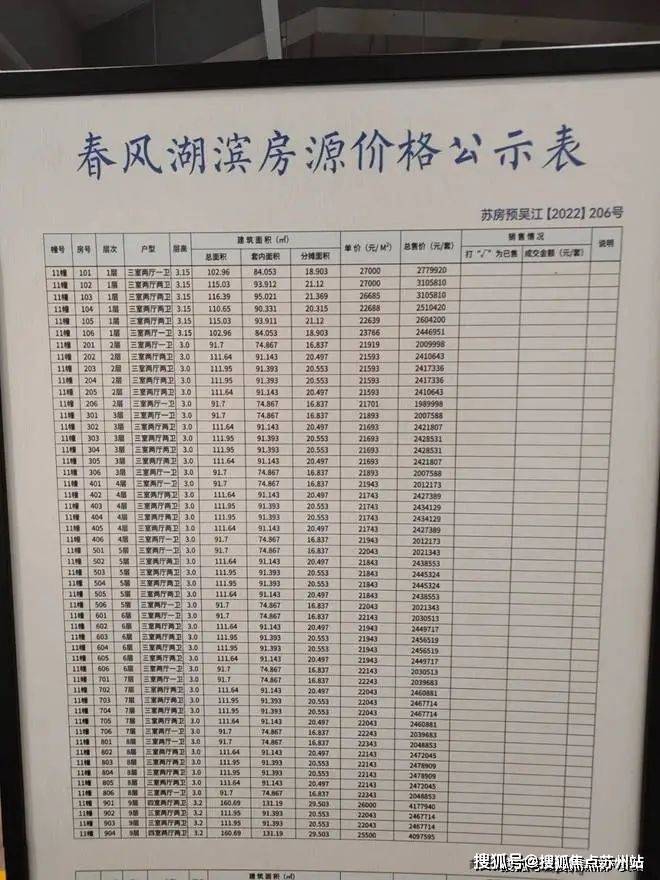 春风湖滨房源价格公示表
苏房预吴江【2022】206号
幢号 房号 层次 户型 层高 建筑面积(㎡) 单价(元/M²) 总售价(元/套) 销售情况 说明
总面积 套内面积 分摊面积 打“√”为已售 成交金额(元/套)
11幢 101 1层 三室两厅一卫 3.15 102.96 84.053 18.903 27000 2779920
11幢 102 1层 三室两厅两卫 3.15 115.03 93.912 21.12 27000 3105810
11幢 103 1层 三室两厅两卫 3.15 116.39 95.021 21.369 26685 3105810
11幢 104 1层 三室两厅两卫 3.15 110.65 90.331 20.315 22688 2510420
11幢 105 1层 三室两厅两卫 3.15 115.03 93.911 21.12 22639 2604200
11幢 106 1层 三室两厅一卫 3.15 102.96 84.053 18.903 23766 2446951
11幢 201 2层 三室两厅一卫 3.0 91.7 74.867 16.837 21919 2009998
11幢 202 2层 三室两厅两卫 3.0 111.64 91.143 20.497 21593 2410643
11幢 203 2层 三室两厅两卫 3.0 111.95 91.393 20.553 21593 2417336
11幢 204 2层 三室两厅两卫 3.0 111.95 91.393 20.553 21593 2417336
11幢 205 2层 三室两厅两卫 3.0 111.64 91.143 20.497 21593 2410643
11幢 206 2层 三室两厅一卫 3.0 91.7 74.867 16.837 21701 1989998
11幢 301 3层 三室两厅一卫 3.0 91.7 74.867 16.837 21893 2007588
11幢 302 3层 三室两厅两卫 3.0 111.64 91.143 20.497 21693 2421807
11幢 303 3层 三室两厅两卫 3.0 111.95 91.393 20.553 21693 2428531
11幢 304 3层 三室两厅两卫 3.0 111.95 91.393 20.553 21693 2428531
11幢 305 3层 三室两厅两卫 3.0 111.64 91.143 20.497 21693 2421807
11幢 306 3层 三室两厅一卫 3.0 91.7 74.867 16.837 21893 2007588
11幢 401 4层 三室两厅一卫 3.0 91.7 74.867 16.837 21943 2012173
11幢 402 4层 三室两厅两卫 3.0 111.64 91.143 20.497 21743 2427389
11幢 403 4层 三室两厅两卫 3.0 111.95 91.393 20.553 21743 2434129
11幢 404 4层 三室两厅两卫 3.0 111.95 91.393 20.553 21743 2434129
11幢 405 4层 三室两厅两卫 3.0 111.64 91.143 20.497 21743 2427389
11幢 406 4层 三室两厅一卫 3.0 91.7 74.867 16.837 21943 2012173
11幢 501 5层 三室两厅一卫 3.0 91.7 74.867 16.837 22043 2021343
11幢 502 5层 三室两厅两卫 3.0 111.64 91.143 20.497 21843 2438553
11幢 503 5层 三室两厅两卫 3.0 111.95 91.393 20.553 21843 2445324
11幢 504 5层 三室两厅两卫 3.0 111.95 91.393 20.553 21843 2445324
11幢 505 5层 三室两厅两卫 3.0 111.64 91.143 20.497 21843 2438553
11幢 506 5层 三室两厅一卫 3.0 91.7 74.867 16.837 22043 2021343
11幢 601 6层 三室两厅一卫 3.0 91.7 74.867 16.837 22143 2030513
11幢 602 6层 三室两厅两卫 3.0 111.64 91.143 20.497 21943 2449717
11幢 603 6层 三室两厅两卫 3.0 111.95 91.393 20.553 21943 2456519
11幢 604 6层 三室两厅两卫 3.0 111.95 91.393 20.553 21943 2456519
11幢 605 6层 三室两厅两卫 3.0 111.64 91.143 20.497 21943 2449717
11幢 606 6层 三室两厅一卫 3.0 91.7 74.867 16.837 22143 2030513
11幢 701 7层 三室两厅一卫 3.0 91.7 74.867 16.837 22243 2039683
11幢 702 7层 三室两厅两卫 3.0 111.64 91.143 20.497 22043 2460881
11幢 703 7层 三室两厅两卫 3.0 111.95 91.393 20.553 22043 2467714
11幢 704 7层 三室两厅两卫 3.0 111.95 91.393 20.553 22043 2467714
11幢 705 7层 三室两厅两卫 3.0 111.64 91.143 20.497 22043 2460881
11幢 706 7层 三室两厅一卫 3.0 91.7 74.867 16.837 22243 2039683
11幢 801 8层 三室两厅一卫 3.0 91.7 74.867 16.837 22343 2048853
11幢 802 8层 三室两厅两卫 3.0 111.64 91.143 20.497 22143 2472045
11幢 803 8层 三室两厅两卫 3.0 111.95 91.393 20.553 22143 2478909
11幢 804 8层 三室两厅两卫 3.0 111.95 91.393 20.553 22143 2478909
11幢 805 8层 三室两厅两卫 3.0 111.64 91.143 20.497 22143 2472045
11幢 806 8层 三室两厅一卫 3.0 91.7 74.867 16.837 22343 2048853
11幢 901 9层 四室两厅两卫 3.2 160.69 131.19 29.503 26000 4177940
11幢 902 9层 三室两厅两卫 3.2 111.95 91.393 20.553 22043 2467714
11幢 903 9层 三室两厅两卫 3.2 111.95 91.393 20.553 22043 2467714
11幢 904 9层 四室两厅两卫 3.2 160.69 131.19 29.503 25500 4097595
建筑面积(㎡)
搜狐号@搜狐焦点苏州站